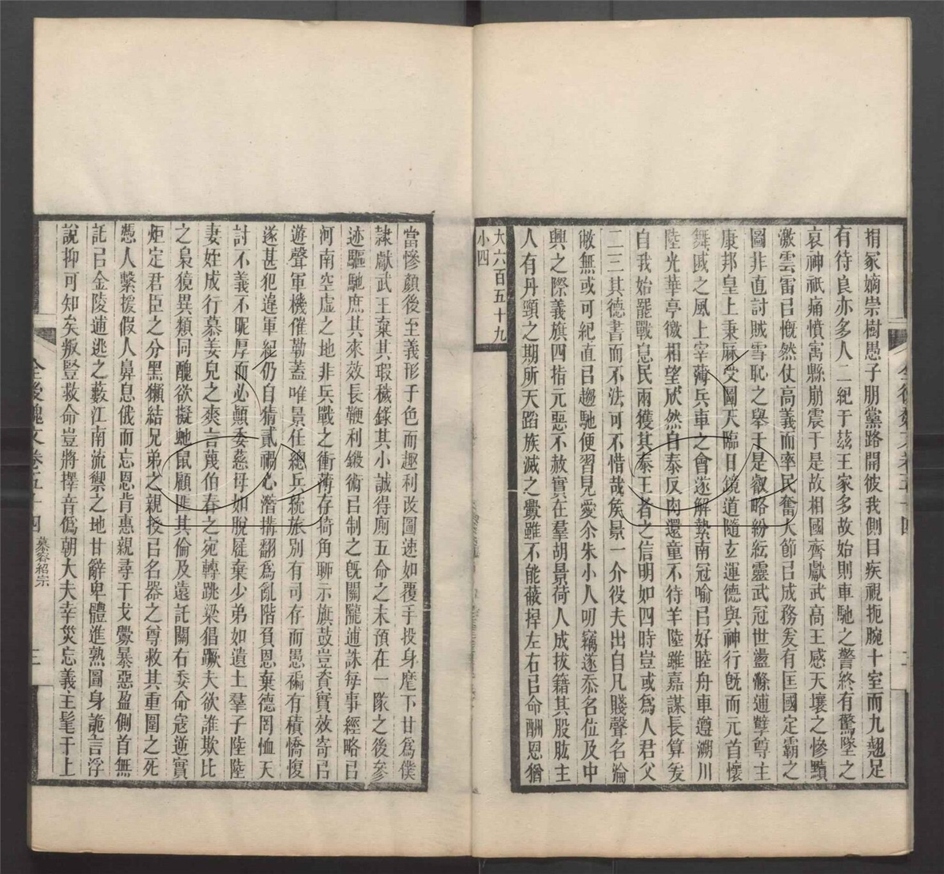 捐冢嫡崇樹愚子朋黨路開彼我側目疾視扼腕十室而九翹足
有待良亦多人二紀于茲王家多故始則車馳之警終有驚墜之
哀神祇痛憤寓縣崩震于是故相國齊獻武高王感天壤之慘黷
激雲雷㠯慨然仗高義而率民奮大節㠯成務爰有匡國定霸之
圖非直討賊雪恥之舉于是叡略紛紜靈武冠世盪滌逋孽尊主
康邦皇上秉厤受圖天臨日鏡道隨玄運德與神行旣而元首懷
舞戚之風上宰薄兵車之會遂解縶南冠喻㠯好睦舟車遵溯川
陸光華亭徼相望欣然自泰反肉還童不待羊陸雖嘉謀長算爰
自我始罷戰息民兩獲其泰王者之信明如四時豈或為人君父
二三其德書而不法可不惜哉矦景一介役夫出自凡賤聲名淪
敝無或可紀直㠯趨馳便習見愛尒朱小人叨竊遂忝名位及中
興之際義旗四指元惡不赦實在羣胡景荷人成拔籍其股肱主
人有丹頸之期所天蹈族滅之釁雖不能蔽捍左右㠯命酬恩猶
大六百五十九
小四
當慘顏後至義形于色而趣利改圖速如覆手投身麾下甘為僕
隷獻武王棄其瑕穢錄其小誠得廁五命之末預在一隊之後參
迹驅馳庶其來效長鞭利鍛術㠯制之旣關隴逋誅每事經略㠯
河南空虛之地非兵戰之衝薄存犄角聊示旗鼓豈資實效寄㠯
遊聲軍機催勒蓋唯景任總兵統旅別有司存而愚褊有積憍愎
遂甚犯違軍紀仍自猜貳禍心潛搆翻為亂階負恩棄德罔恤天
討不義不昵厚而必顛委慈母如脫屣棄少弟如遺土羣子陸陸
妻姪成行慕姜兒之爽言蔑伯春之宛轉跳梁倡蹶夫欲誰欺比
之梟獍異類同醜欲擬虵鼠顧匪其倫及遠託關右委命寇逆寶
炬定君臣之分黑獺結兄弟之親授㠯名器之尊救其重圍之死
憑人繫援假人鼻息俄而忘恩背惠親尋干戈釁暴惡盈側首無
託㠯金陵逋逃之藪江南流禦之地甘辭卑體進熟圖身詭言浮
說抑可知矣叛豎救命豈將擇音偽朝大夫幸災忘義主髦于上
全後魏文卷五十四
慕容紹宗
三